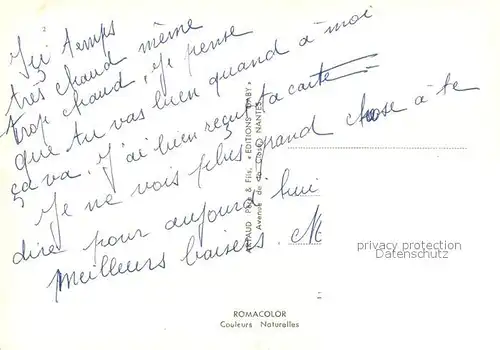 Ici temps
très chaud même
trop chaud, Je pense
que tu vas bien quand à moi
ça va. J'ai bien reçu ta carte
Je ne vois plus grand chose à te
dire pour aujourd'hui
Meilleurs baisers. M
ARTAUD Père & Fils, « EDITIONS GABY »
Avenue de la Close, NANTES
privacy protection
Datenschutz
ROMACOLOR
Couleurs Naturelles